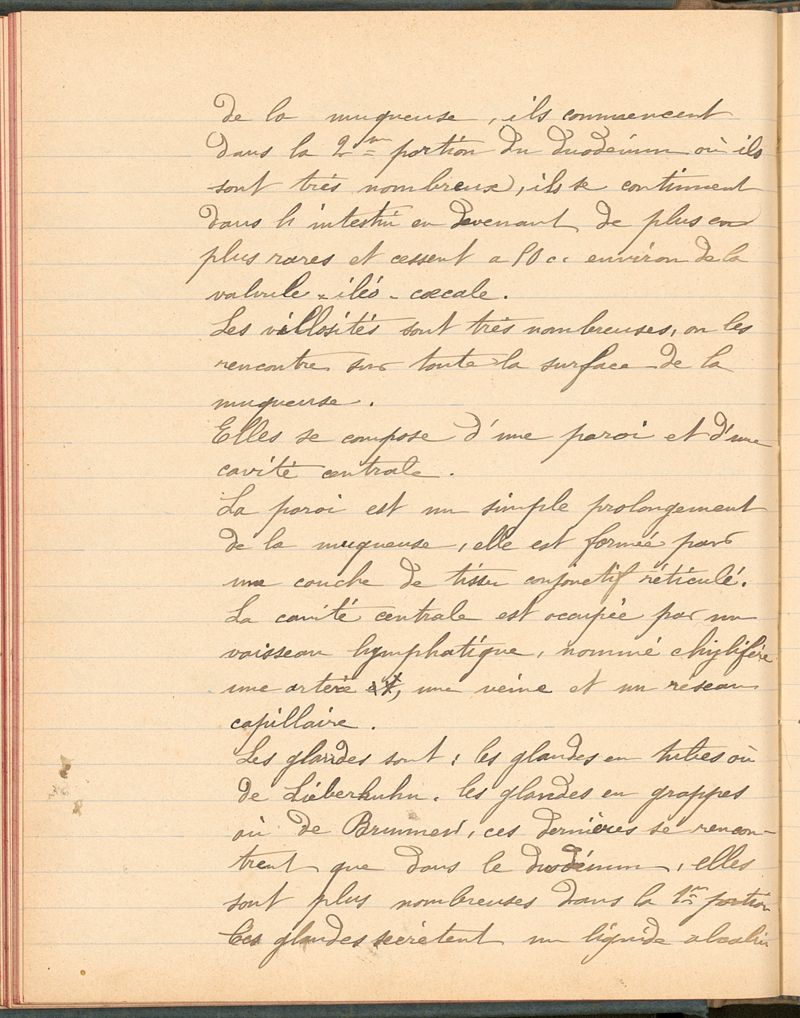 de la muqueuse, ils commencent
dans la 2me portion du duodénum où ils
sont très nombreux, ils se continuent
dans l'intestin en devenant de plus en
plus rares et cessent a 80 c. environ de la
valvule - iléo - cœcale.
Les villosités sont très nombreuses, on les
rencontre sur toute la surface de la
muqueuse.
Elles se compose d'une paroi et d'une
cavité centrale.
La paroi est un simple prolongement
de la muqueuse, elle est formée par
une couche de tissu conjonctif réticulé.
La cavité centrale est occupée par un
vaisseau lymphatique, nommé chylifère
une artère et, une veine et un reseau
capillaire.
Les glandes sont : les glandes en tubes ou
de Lieberkuhn. les glandes en grappes
ou de Brunner, ces dernières se rencon-
trent que dans le duodénum, elles
sont plus nombreuses dans la 1re portion
Ces glandes secrètent un liquide alcalin